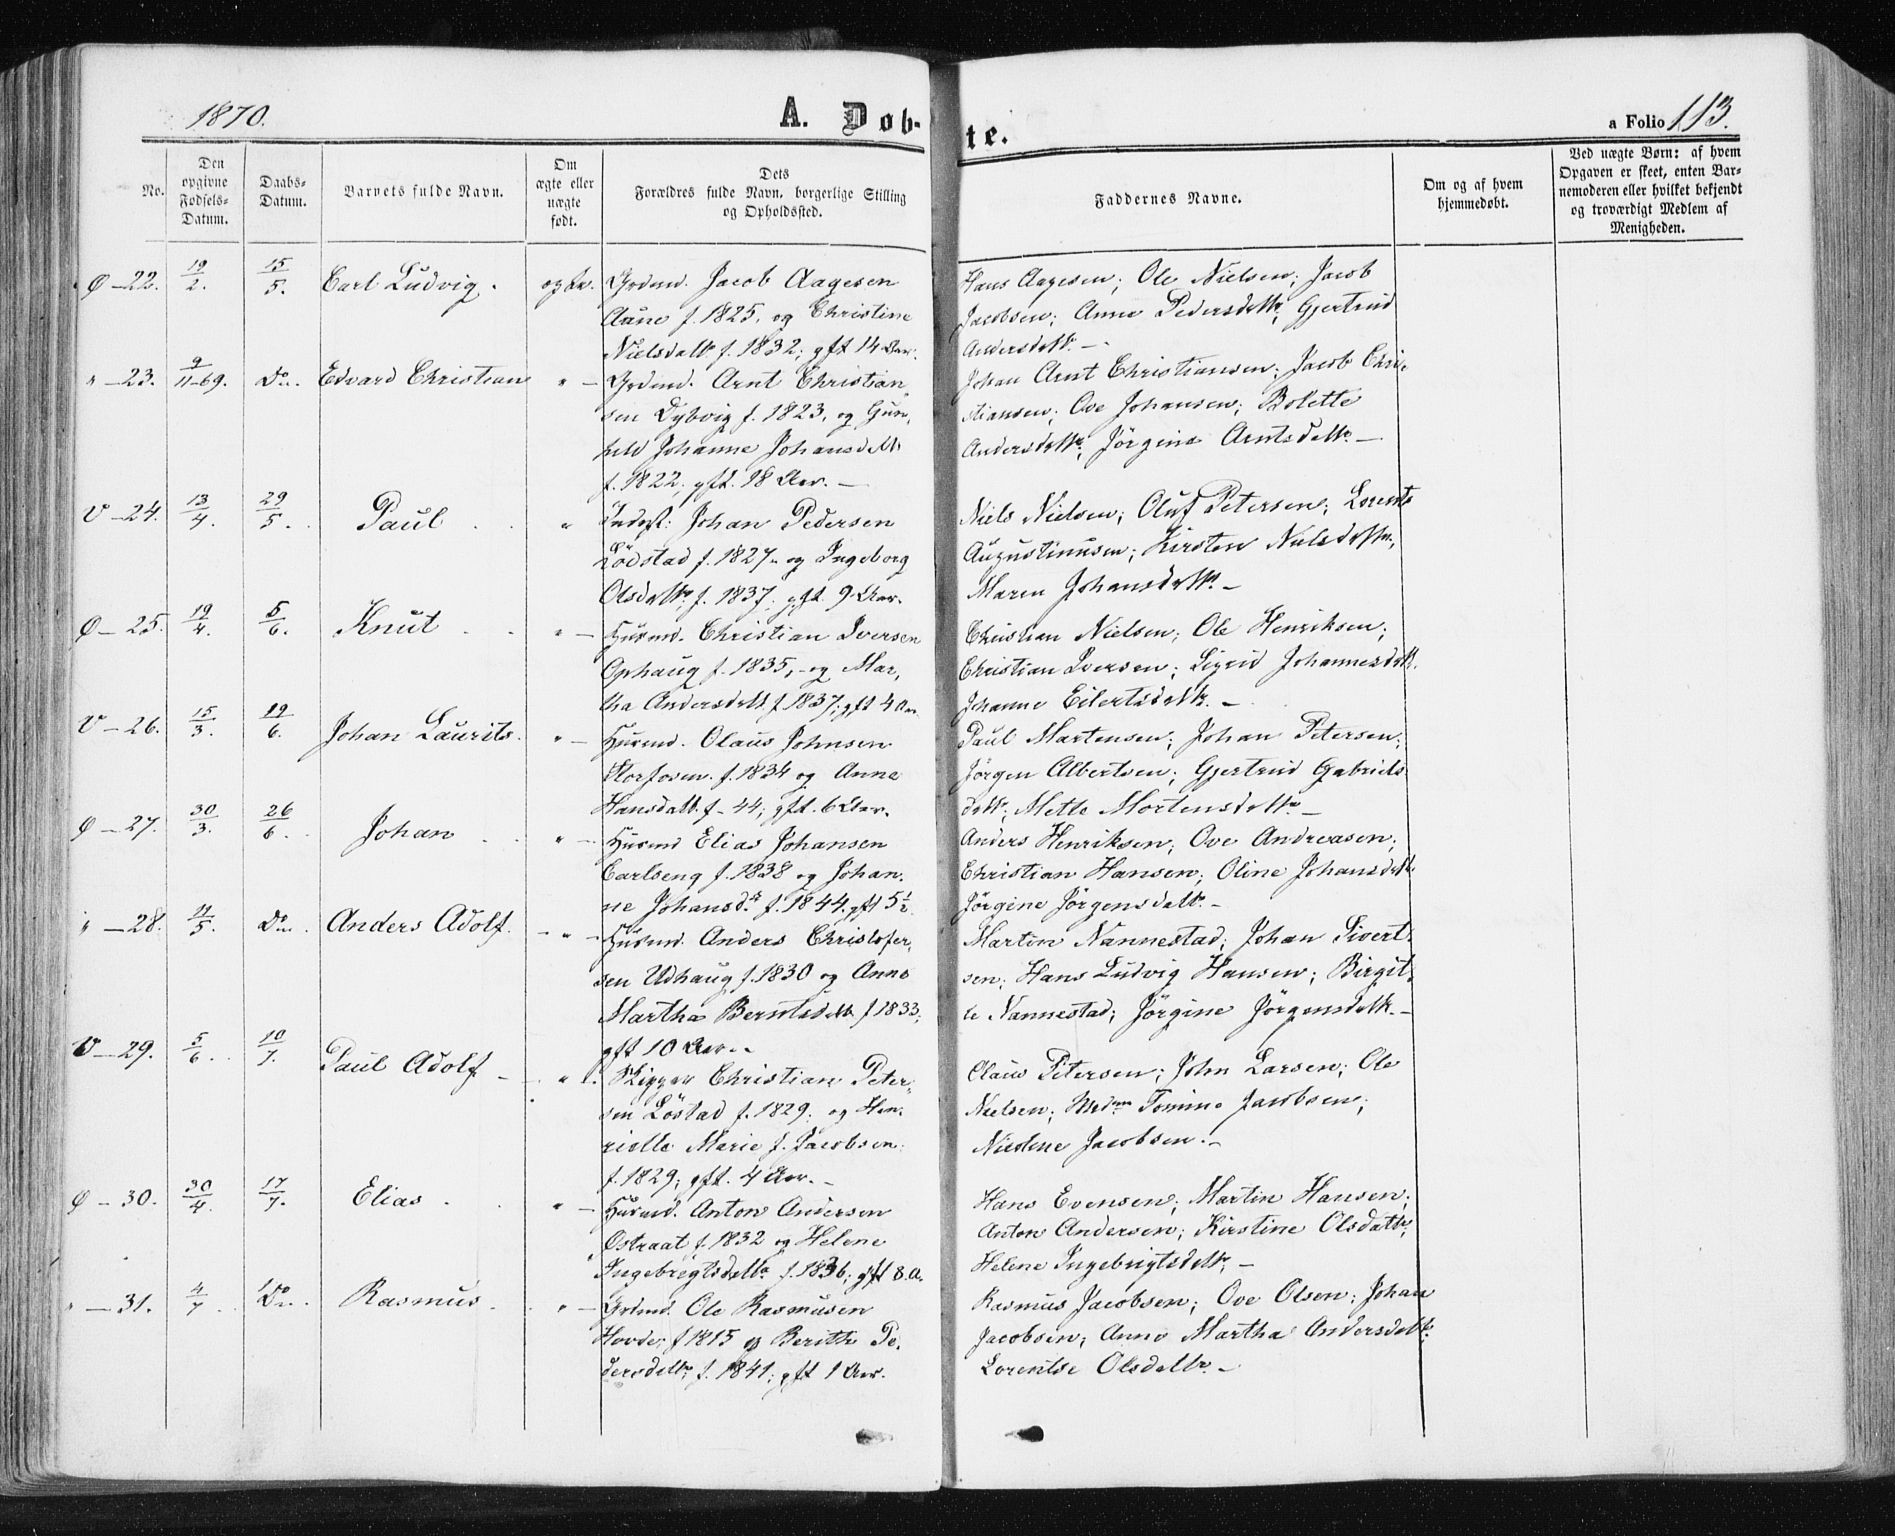 1870.
A. Døb-
te.
a Folio 113.
No.
Den opgivne Fødsels-Datum.
Daabs-Datum.
Barnets fulde Navn.
Om ægte eller uægte født.
Dets Forældres fulde Navn, borgerlige Stilling og Opholdssted.
Faddernes Navne.
Om og af hvem hjemmedøbt.
Ved uægte Børn: af hvem Opgaven er skeet, enten Barnemoderen eller hvilket bekjendt og troværdigt Medlem af Menigheden.
Ø - 22. 19/2. 15/5. Carl Ludvig. ægte. Grdmd. Jacob Aagesen
Aune f. 1825, og Christine
Nielsdatt. f. 1832; gft 14 Aar.
Hans Aagesen; Ole Nielsen; Jacob
Jacobsen; Anne Pedersdttr; Gjertrud
Andersdttr. -
" - 23. 9/11-69. Do. Edvard Christian " - Grdmd. Arnt Christian
sen Dybvig f. 1823, og Gun,
hild Johanne Johansdatt.
f. 1822, gft. 18 Aar. -
Johan Arnt Christiansen; Jacob Chri-
stiansen; Ove Johansen; Bolette
Andersdttr; Jörgine Arntsdttr. -
V - 24. 13/4. 29/5. Paul " Inderst: Johan Pedersen
Lödstad f. 1827 - og Ingeborg
Olsdattr: f. 1837; gft. 9 Aar.
Niels Nielsen; Oluf Petersen; Lorents
Augustinusen; Kirsten Nielsdttr,
Maren Johansdttr. -
Ø - 25. 19/4. 5/6. Knut " - Husmd. Christian Iversen
Ophaug f. 1835, - og Mar,
tha Andersdatt. f. 1837; gft 4 Aar
Christian Nielsen; Ole Henriksen;
Christian Iversen; Sigrid Johannesdttr.
Johanne Eilertsdttr. -
V - 26. 15/3. 19/6. Johan Laurits. " - Husmd. Olaus Johnsen
Storfosen. f. 1834 og Anna
Hansdatt. f - 44; gft. 6 Aar.
Paul Martensen; Johan Petersen;
Jörgen Albertsen; Gjertrud Gabriels
dttr; Mette Mortensdttr -
Ø - 27. 30/3. 26/6. Johan " - Husmd Elias Johansen
Carlseng f. 1838 og Johan,
ne Johansdr. f. 1844. gft 5½
Anders Henriksen; Ove Andreasen;
Christian Hansen; Oline Johansdttr
Jörgine Jörgensdatt. -
" - 28. 11/5. Do. Anders Adolf. - " - Husmd. Anders Christofer,
sen Udhaug f. 1830 og Anne
Martha Berntsdatt. f 1833;
gft 10 Aar. -
Martin Nannestad; Johan Sivert-
sen; Hans Ludvig Hansen; Birgit-
te Nannestad; Jörgine Jörgensdatt. -
V - 29. 5/6. 10/7. Paul Adolf - " - Skipper Christian Peter,
sen Löstad f. 1829. og Hen,
riette Marie f. Jacobsen.
f. 1829; gft. 4 Aar. -
Claus Petersen; John Larsen; Ole
Nielsen; Tomine Jacobsen;
Nicoline Jacobsen. -
Ø - 30. 30/4. 17/7. Elias " - Husmd. Anton Andersen
Østraat f. 1832 og Helene
Ingebregtsdattr f. 1836; gft 8. A.
Hans Evensen; Martin Hansen;
Anton Andersen; Kirstine Olsdattr;
Helene Ingebrigtsdttr. -
" - 31. 4/7. Do. Rasmus. " - Grdmd. Ole Rasmusen
Hovde f. 1815 og Berith Pe,
dersdattr. f. 1841; gft 1 Aar.
Rasmus Jacobsen; Ove Olsen; Johan
Jacobsen; Anne Martha Andersdattr.
Lorentse Olsdattr. -